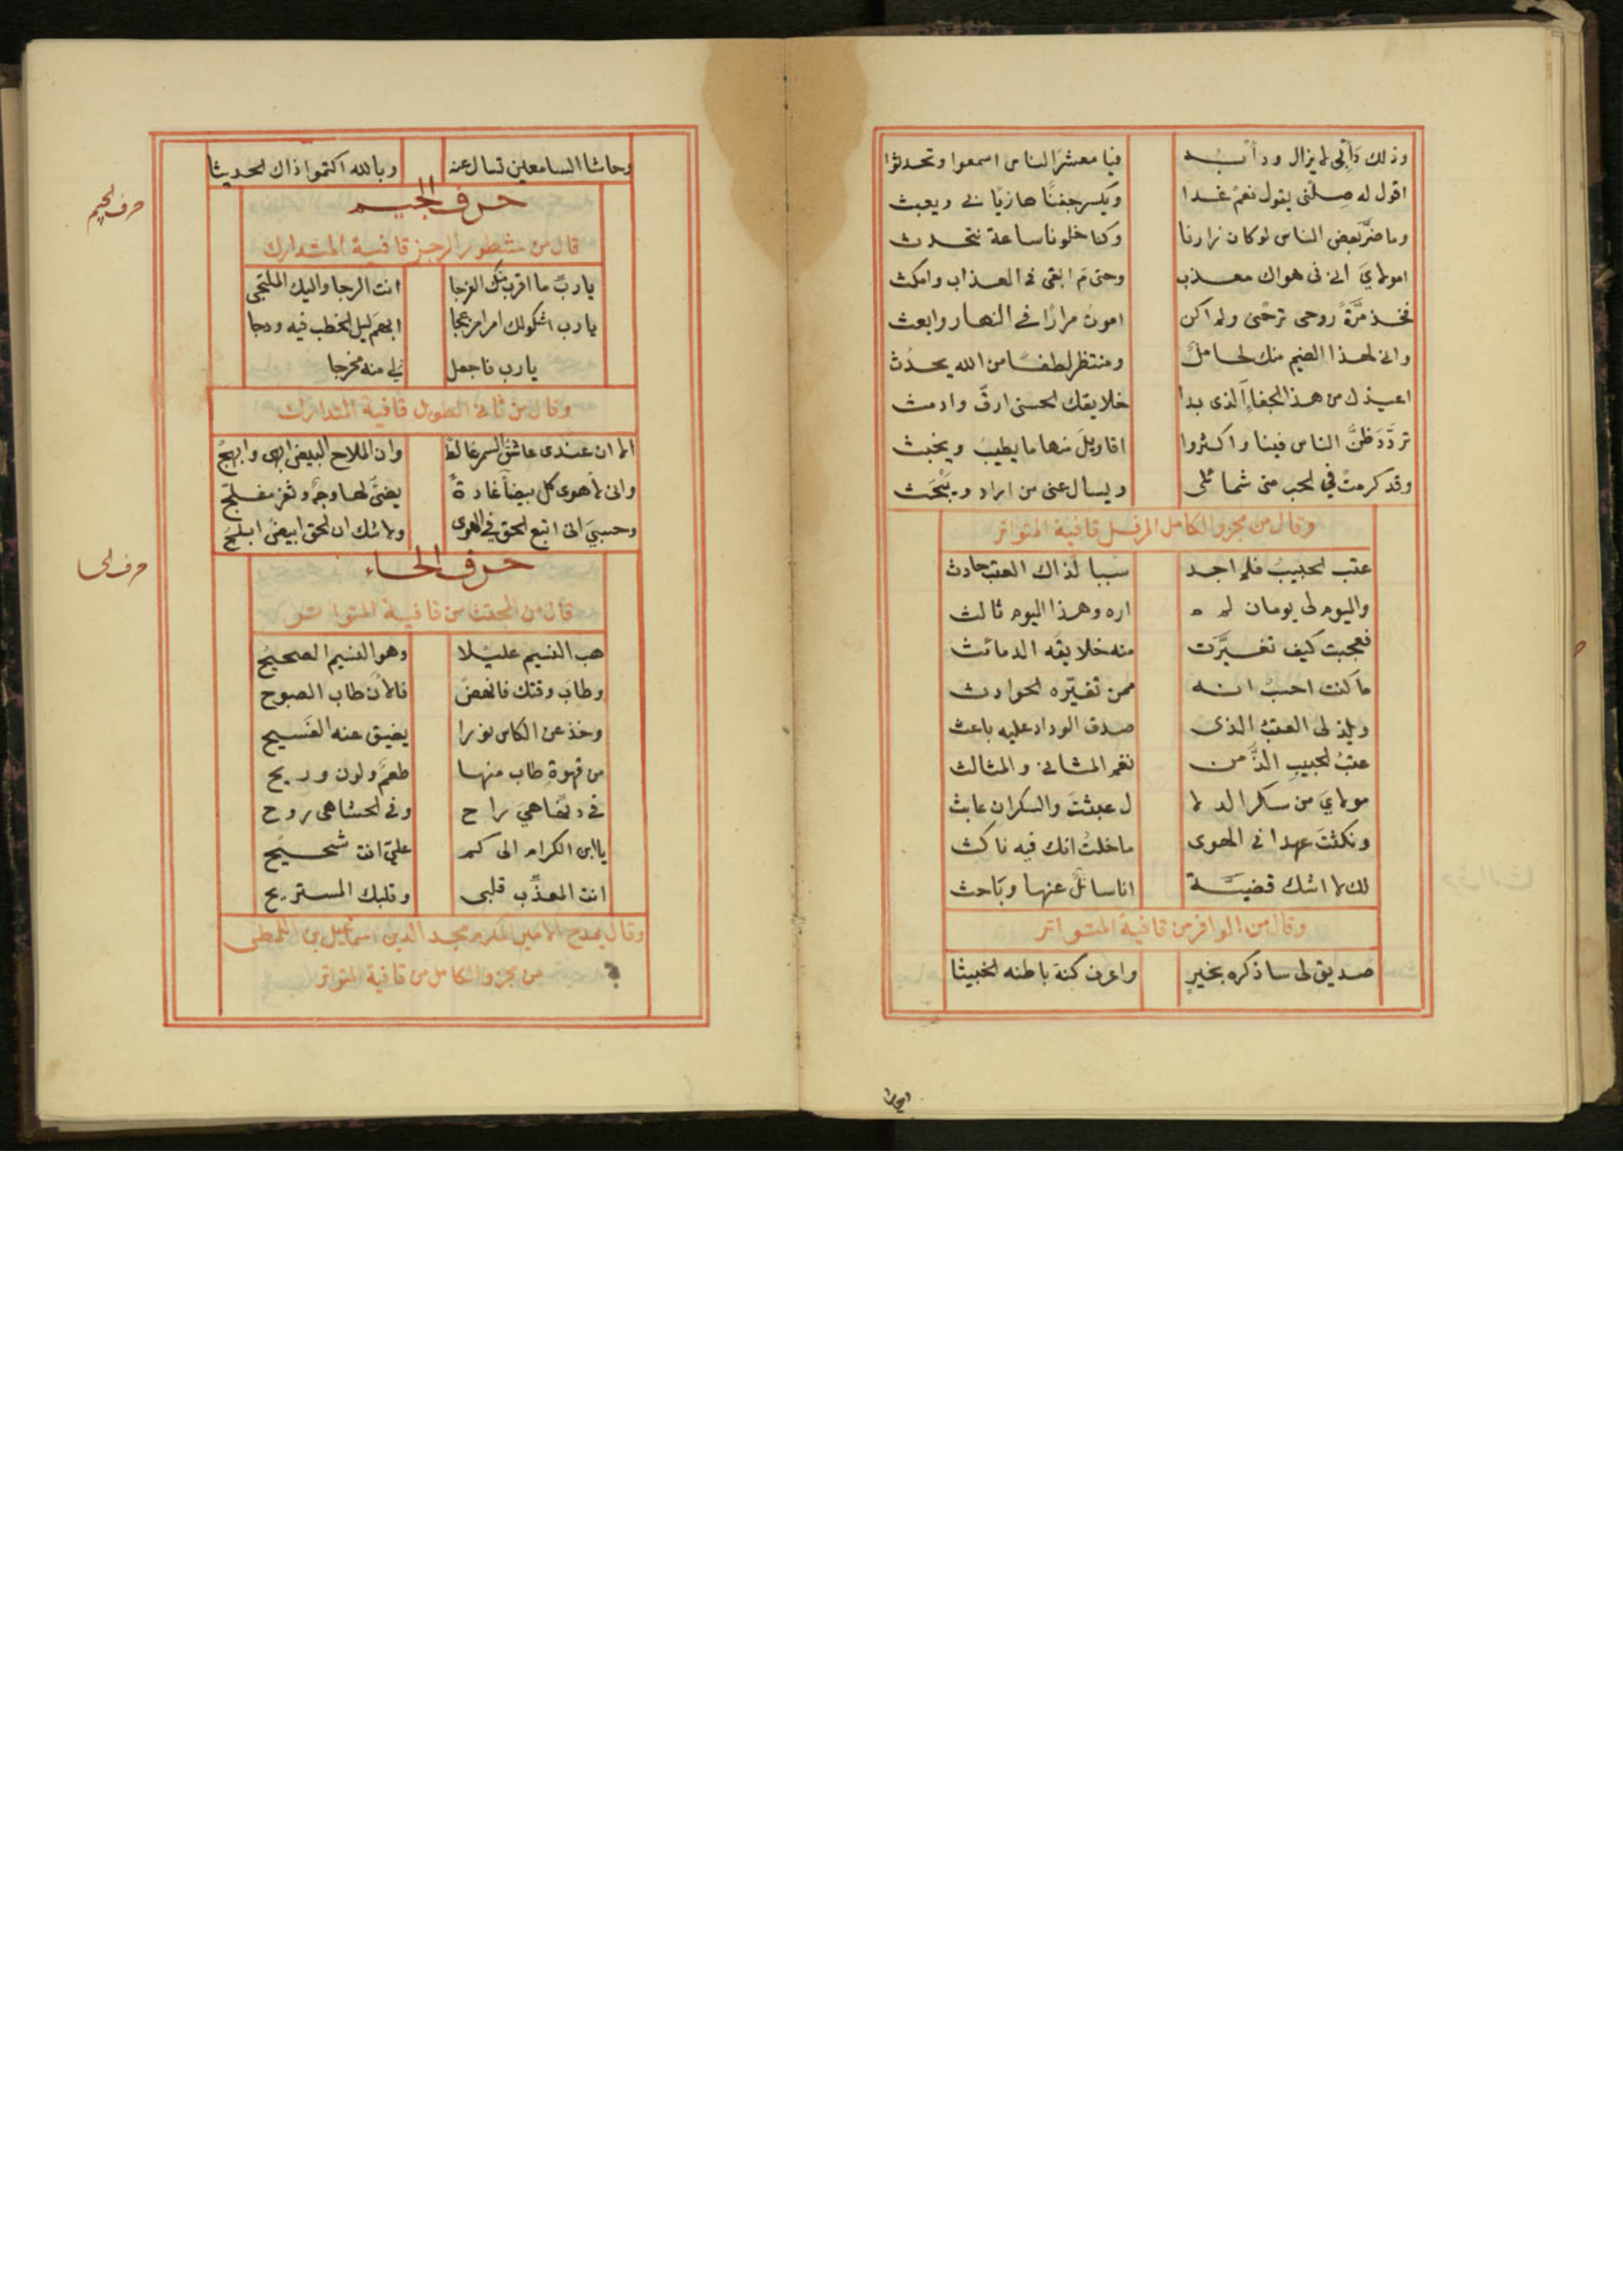 وذلك دأبي لا يزال ودأبه فيا معشر الناس اسمعوا وتحدثوا
اقول له صلني يقول نعم غدا ويكسر جفنا هازيا بي ويعبث
وما ضر بعض الناس لو كان زارنا وكنا خلونا ساعة نتحدث
امولاي اني في هواك معذب وحتى م ابقى في العذاب وامكث
فخذ مرة روحي ترحني ولم اكن اموت مرارا في النهار وابعث
واني لهذا الضيم منك لحامل ومنتظر لطفا من الله يحدث
اعيذك من هذا الجفاء الذي بدا خلايقك الحسنى ارق وادمث
تردد ظن الناس فينا واكثروا اقاويل منها ما يطيب ويخبث
وقد كرمت في الحب مني شمائلي ويسال عني من اراد ويبحث
وقال من مجزو الكامل المرفل قافية المتواتر
عتب الحبيب فلم اجد سببا لذاك العتب حادث
واليوم لي يومان لم اره وهذا اليوم ثالث
فعجبت كيف تغيرت منه خلايقه الدمائث
ما كنت احسب انه ممن تغيره الحوادث
ويلذ لي العتب الذي صدق الوداد عليه باعث
عتب الحبيب الذ من نغم المثاني والمثالث
مولاي من سكر الدلا ل عبثت والسكران عابث
ونكثت عهدا في الهوى ما خلت انك فيه ناكث
لك لا اشك قضية انا سائل عنها وباحث
وقال من الوافر من قافية المتواتر
صديق لي ساذكره بخير واعرف كنة باطنه الخبيثا
وحاشا
وحاشا السامعين تسال عنه وبالله اكتموا ذاك الحديثا
حرف الجيم
حرف الجيم
قال من مشطور الرجز قافية المتدارك
يا رب ما اقرب منك الفرجا انت الرجا واليك الملتجى
يا رب اشكو لك امرا مزعجا ابهم ليل الخطب فيه ودجا
يا رب فاجعل لي منه مخرجا
وقال من ثاني الطويل قافية المتدارك
الا ان عندي عاشق السمر غالط وان الملاح البيض ابهى وابهج
واني لاهوى كل بيضا غادة يضئ لها وجه وثغر مفلج
وحسبي اني اتبع الحق في الهوى ولا شك ان الحق ابيض ابلج
حرف الحاء
حرف الحا
قال من المجتث من قافية المتواتر
هب النسيم عليلا وهو النسيم الصحيح
وطاب وقتك فانهض فالآن طاب الصبوح
وخذ عن الكاس نورا يضيق عنه الفسيح
من قهوة طاب منها طعم ولون وريح
في دنها هي راح وفي الحشا هي روح
يا ابن الكرام الى كم علي انت شحيح
انت المعذب قلبي وقلبك المستريح
وقال يمدح الامير المكرم مجد الدين اسماعيل بن اللمطي
من مجزو الكامل من قافية المتواتر